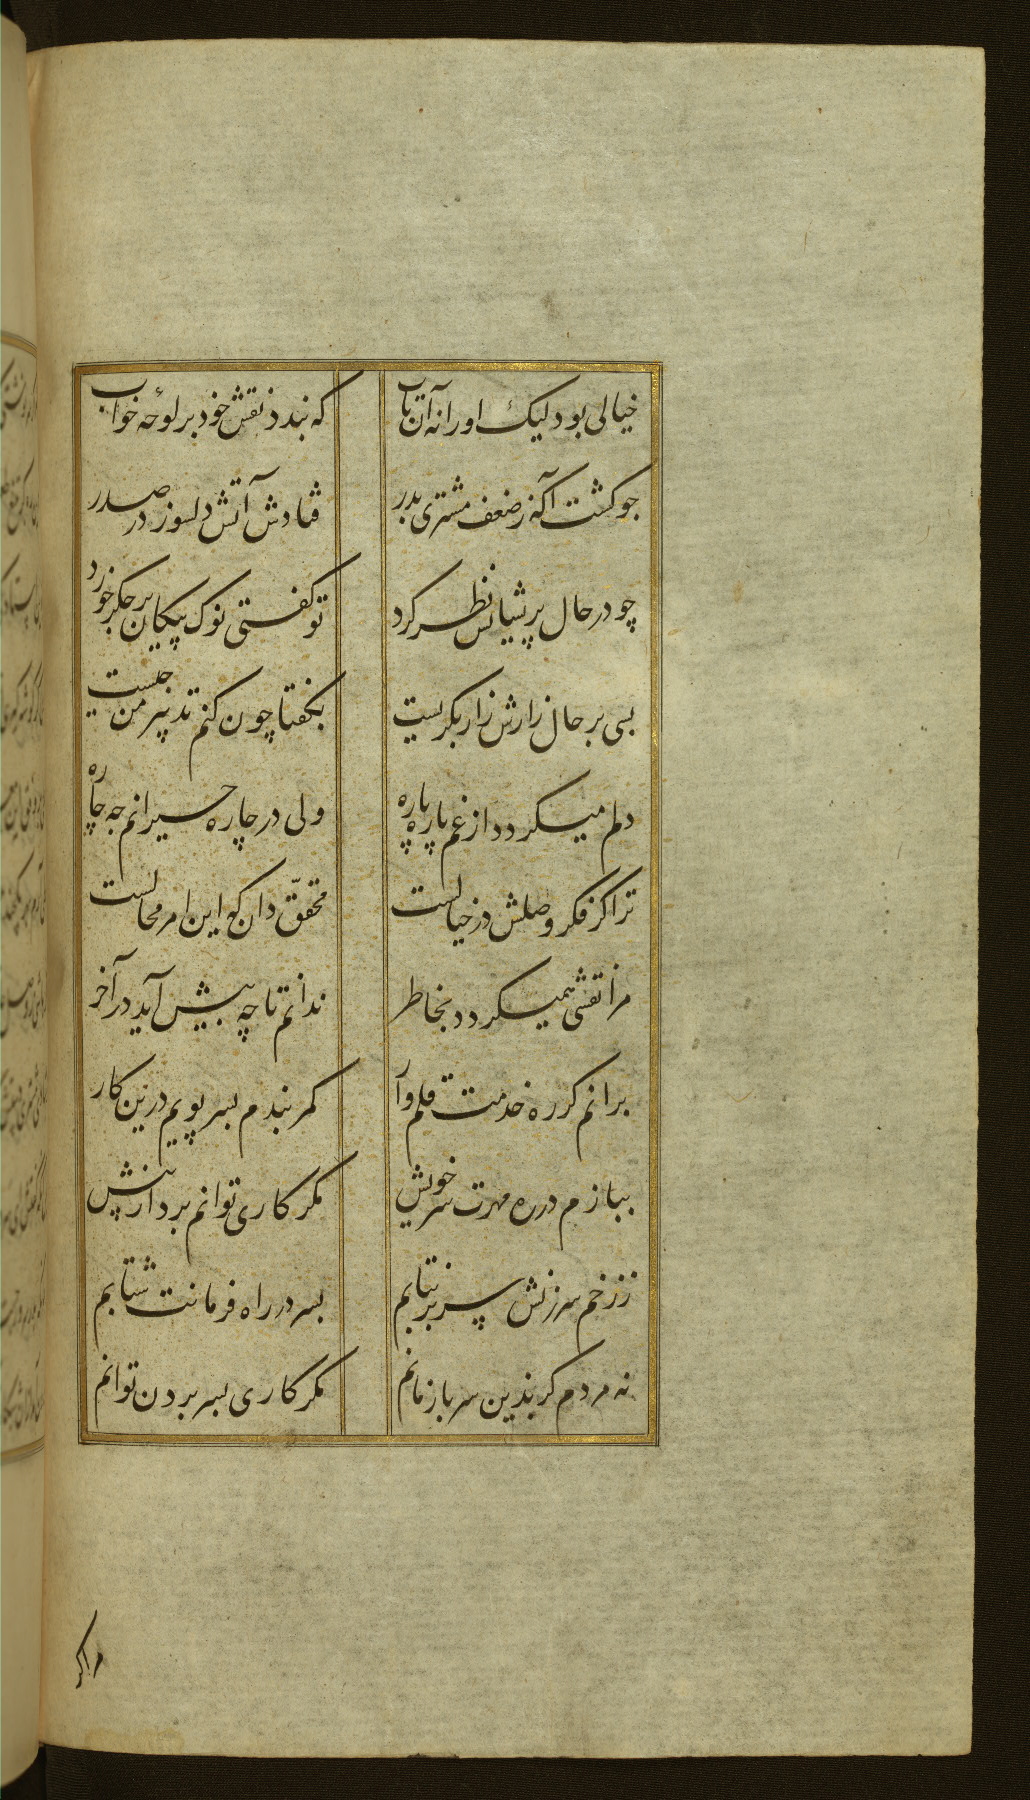 خیالی بود لیک او را نه آن تاب
که بندد نقش خود بر لوحه خواب
جو کشت آکه ز ضعف مشتری بدر
فتادش آتش دلسوز در صدر
چو در حال پریشانش نظر کرد
تو کفتی نوک پیکان بر جکر خورد
بسی بر حال زارش زار بکریست
بکفتا چون کنم تدبیر من جیست
دلم میکردد از غم پاره پاره
ولی در چاره حیرانم جه چاره
ترا کر فکر وصلش در خیالست
محقق دان که این امر محالست
مرا نقشی همیکردد بخاطر
ندانم تا چه پیش آید در آخر
برانم کز ره خدمت قلم وار
کمر بندم بسر پویم درین کار
ببازم در ره مهرت سر خویش
مکر کاری توانم بردن از پیش
ز زخم سرزنش سر برنتابم
بسر در راه فرمانت شتابم
نه مردم کر بدین سر باز مانم
مکر کاری بسر بردن توانم